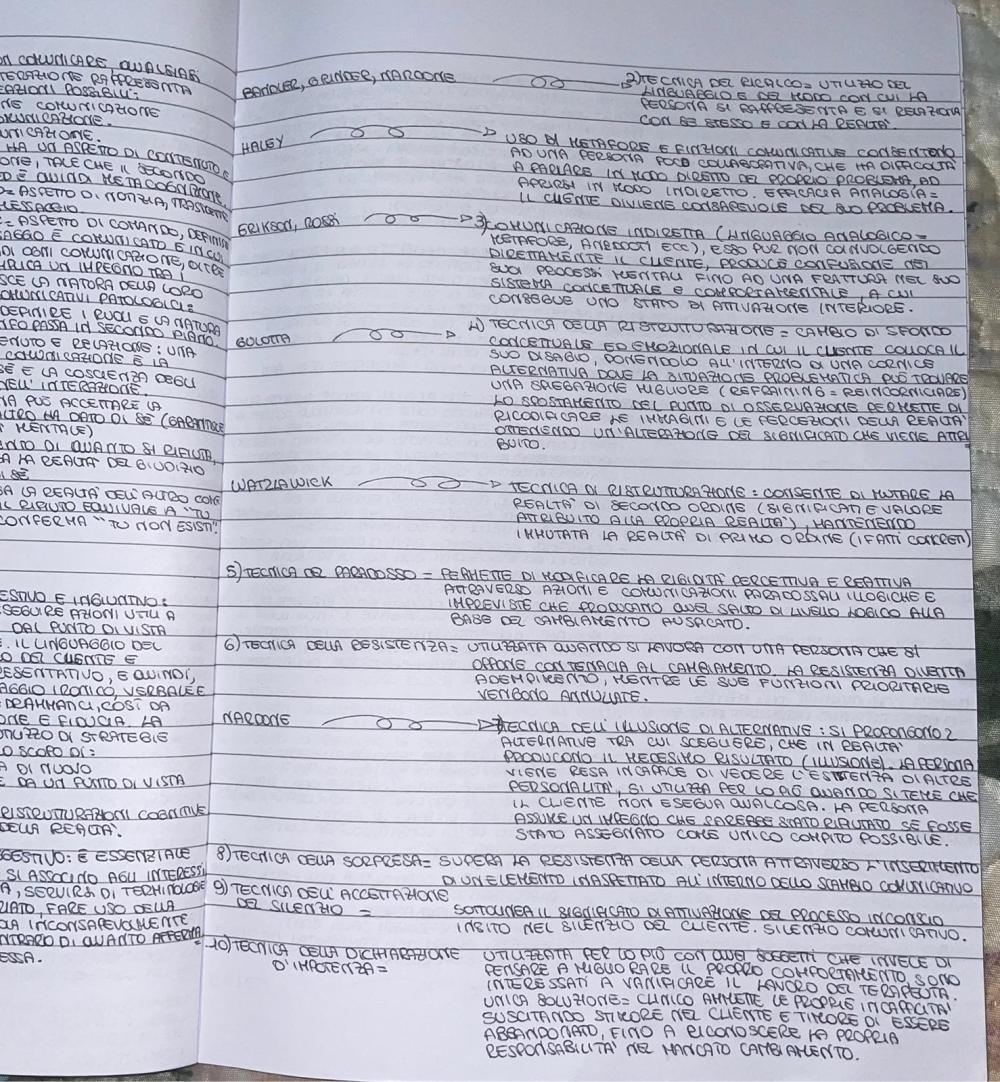 ON COMUNICARE, QUALSIASI
TERAZIONE RAPPRESENTA
EAZIONI POSSIBILI:
NE COMUNICAZIONE
OMUNICAZIONE.
UNICAZIONE.
HA UN ASPETTO DI CONTENUTO E
ONE, TALE CHE IL SECONDO
ED È QUINDI METACOGNIZIONE.
O = ASPETTO DI NOTIZIA, TRASMETTE
MESSAGGIO
E = ASPETTO DI COMANDO, DEFINISI
SAGGIO È COMUNICATO E IN CUI
DI OGNI COMUNICAZIONE, OLTRE
MRICA UN IMPEGNO TRA I
SCE LA NATURA DELLA LORO
OMUNICATIVI PATOLOGICI =
DEFINIRE I RUOLI E LA NATURA
TRO PASSA IN SECONDO PIANO.
ENUTO E RELAZIONE: UNA
COMUNICAZIONE È LA
SÉ E LA COSCIENZA DEGLI
NELL'INTERAZIONE.
NA PUÒ ACCETTARE LA
ALTRO HA DATO DI SÉ (GARANTISCE
MENTALE)
ANTO DI QUANTO SI RIFIUTA,
A LA REALTÀ DEL GIUDIZIO
I SÉ
SA LA REALTÀ DELL'ALTRO COME
IL RIFIUTO EQUIVALE A "TU
CONFERMA "TU NON ESISTI".
ESTIVO E INGIUNTIVO:
SEGUIRE AZIONI UTILI A
DAL PUNTO DI VISTA
E. IL LINGUAGGIO DEL
O DEL CLIENTE E
RESENTATIVO, E QUINDI,
AGGIO IRONICO, VERBALE E
DRAMMANCI, COSÌ DA
ONE E FIDUCIA. LA
UTILIZZO DI STRATEGIE
LO SCOPO DI:
A DI NUOVO
E DA UN PUNTO DI VISTA
RISTRUTTURAZIONI COGNITIVE
DELLA REALTÀ.
GGESTIVO: È ESSENZIALE
SI ASSOCINO AGLI INTERESSI
A, SERVIRSI DI TERMINOLOGIE
RIATO, FARE USO DELLA
OLA INCONSAPEVOLMENTE
NTRARIO DI QUANTO AFFERMA
ESSA.
BANDLER, GRINDER, NARDONE 2) TECNICA DEL RICALCO = UTILIZZO DEL
LINGUAGGIO E DEL MODO CON CUI LA
PERSONA SI RAPPRESENTA E SI RELAZIONA
CON SÉ STESSO E CON LA REALTÀ.
HALEY USO DI METAFORE E FINZIONI COMUNICATIVE CONSENTONO
AD UNA PERSONA POCO COLLABORATIVA, CHE HA DIFFICOLTÀ
A PARLARE IN MODO DIRETTO DEL PROPRIO PROBLEMA, AD
APRIRSI IN MODO INDIRETTO. EFFICACIA ANALOGIA
IL CLIENTE DIVIENE CONSAPEVOLE DEL SUO PROBLEMA.
ERIKSON, ROSSI 3) COMUNICAZIONE INDIRETTA (LINGUAGGIO ANALOGICO =
METAFORE, ANEDDOTI ECC), ESSO PUR NON COINVOLGENDO
DIRETTAMENTE IL CLIENTE, PRODUCE CONFUSIONE NEI
SUOI PROCESSI MENTALI FINO AD UNA FRATTURA NEL SUO
SISTEMA CONCETTUALE E COMPORTAMENTALE, A CUI
CONSEGUE UNO STATO DI ATTIVAZIONE INTERIORE.
GULOTTA 4) TECNICA DELLA RISTRUTTURAZIONE = CAMBIO DI SFONDO
CONCETTUALE ED EMOZIONALE IN CUI IL CLIENTE COLLOCA IL
SUO DISAGIO, PONENDOLO ALL'INTERNO DI UNA CORNICE
ALTERNATIVA DOVE LA SITUAZIONE PROBLEMATICA PUÒ TROVARE
UNA SPIEGAZIONE MIGLIORE (REFRAMING = REINCORNICIARE)
LO SPOSTAMENTO DEL PUNTO DI OSSERVAZIONE PERMETTE DI
RICODIFICARE LE IMMAGINI E LE PERCEZIONI DELLA REALTÀ
OTTENENDO UN'ALTERAZIONE DEL SIGNIFICATO CHE VIENE ATTRI
BUITO.
WATZLAWICK TECNICA DI RISTRUTTURAZIONE: CONSENTE DI MUTARE LA
REALTÀ DI SECONDO ORDINE (SIGNIFICATI E VALORE
ATTRIBUITO ALLA PROPRIA REALTÀ), MANTENENDO
IMMUTATA LA REALTÀ DI PRIMO ORDINE (I FATTI CONCRETI)
5) TECNICA DEL PARADOSSO = PERMETTE DI MODIFICARE LA RIGIDITÀ PERCETTIVA E REATTIVA
ATTRAVERSO AZIONI E COMUNICAZIONI PARADOSSALI ILLOGICHE E
IMPREVISTE CHE PRODUCANO QUEL SALTO DI LIVELLO LOGICO ALLA
BASE DEL CAMBIAMENTO AUSPICATO.
6) TECNICA DELLA RESISTENZA = UTILIZZATA QUANDO SI LAVORA CON UNA PERSONA CHE SI
OPPONE CON TENACIA AL CAMBIAMENTO. LA RESISTENZA DIVENTA
ADEMPIMENTO, MENTRE LE SUE FUNZIONI PRIORITARIE
VENGONO ANNULLATE.
NARDONE 7) TECNICA DELL'ILLUSIONE DI ALTERNATIVE: SI PROPONGONO 2
ALTERNATIVE TRA CUI SCEGLIERE, CHE IN REALTÀ
PRODUCONO IL MEDESIMO RISULTATO (ILLUSIONE). LA PERSONA
VIENE RESA INCAPACE DI VEDERE L'ESISTENZA DI ALTRE
PERSONALITÀ, SI UTILIZZA PER LO PIÙ QUANDO SI TEME CHE
IL CLIENTE NON ESEGUA QUALCOSA. LA PERSONA
ASSUME UN IMPEGNO CHE SAREBBE STATO RIFIUTATO SE FOSSE
STATO ASSEGNATO COME UNICO COMPITO POSSIBILE.
8) TECNICA DELLA SORPRESA = SUPERA LA RESISTENZA DELLA PERSONA ATTRAVERSO L'INSERIMENTO
DI UN ELEMENTO INASPETTATO ALL'INTERNO DELLO SCAMBIO COMUNICATIVO
9) TECNICA DELL'ACCETTAZIONE
DEL SILENZIO = SOTTOLINEA IL SIGNIFICATO DI ATTIVAZIONE DEL PROCESSO INCONSCIO
INSITO NEL SILENZIO DEL CLIENTE. SILENZIO COMUNICATIVO.
10) TECNICA DELLA DICHIARAZIONE UTILIZZATA PER LO PIÙ CON QUEI SOGGETTI CHE INVECE DI
D'IMPOTENZA = PENSARE A MIGLIORARE IL PROPRIO COMPORTAMENTO, SONO
INTERESSATI A VANIFICARE IL LAVORO DEL TERAPEUTA.
UNICA SOLUZIONE = CLINICO AMMETTE LE PROPRIE INCAPACITÀ
SUSCITANDO STUPORE NEL CLIENTE E TIMORE DI ESSERE
ABBANDONATO, FINO A RICONOSCERE LA PROPRIA
RESPONSABILITÀ NEL MANCATO CAMBIAMENTO.